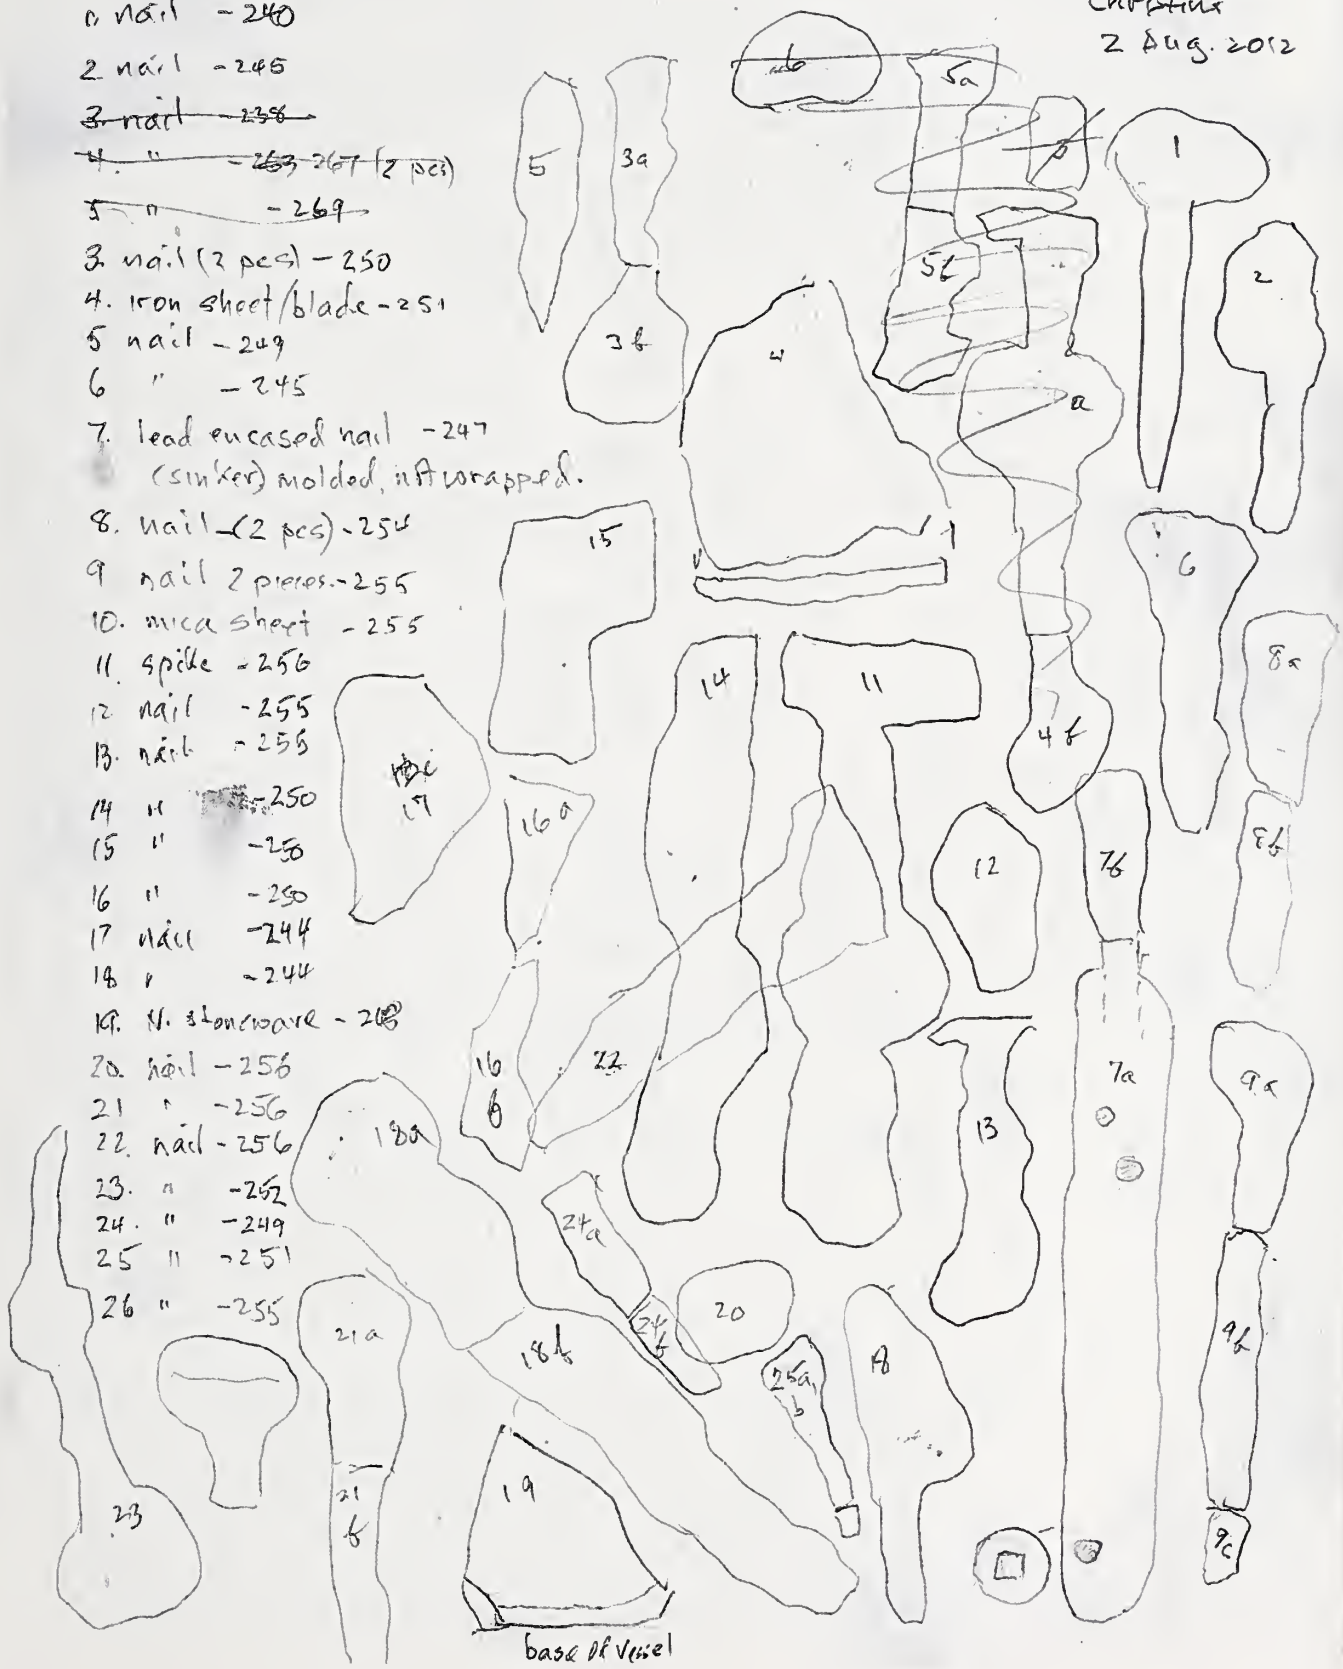 1. nail - 240
2 nail - 245
3. nail - 238
4. " - 263 267 (2 pcs)
5 " - 269
3. nail (2 pcs) - 250
4. iron sheet/blade - 251
5 nail - 249
6 " - 245
7. lead encased nail - 247
(sinker) molded, not wrapped.
8. nail - (2 pcs) - 254
9 nail 2 pieces. - 255
10. mica sheet - 255
11. spike - 256
12 nail - 255
13. nail - 255
14 " - 250
15 " - 250
16 " - 250
17 nail - 244
18 " - 244
19. N. stoneware -
20. nail - 256
21 " - 256
22. nail - 256
23. " - 252
24. " - 249
25 " - 251
26 " - 255
2 Aug. 2012
6
5a
5
3a
1
5b
2
3b
4
a
15
6
14
11
8a
4b
17
16a
12
7b
8b
16
b
22
7a
9a
18a
13
24a
24
b
20
21a
18b
25a,
b
18
9b
19
23
21
b
9c
base of vessel